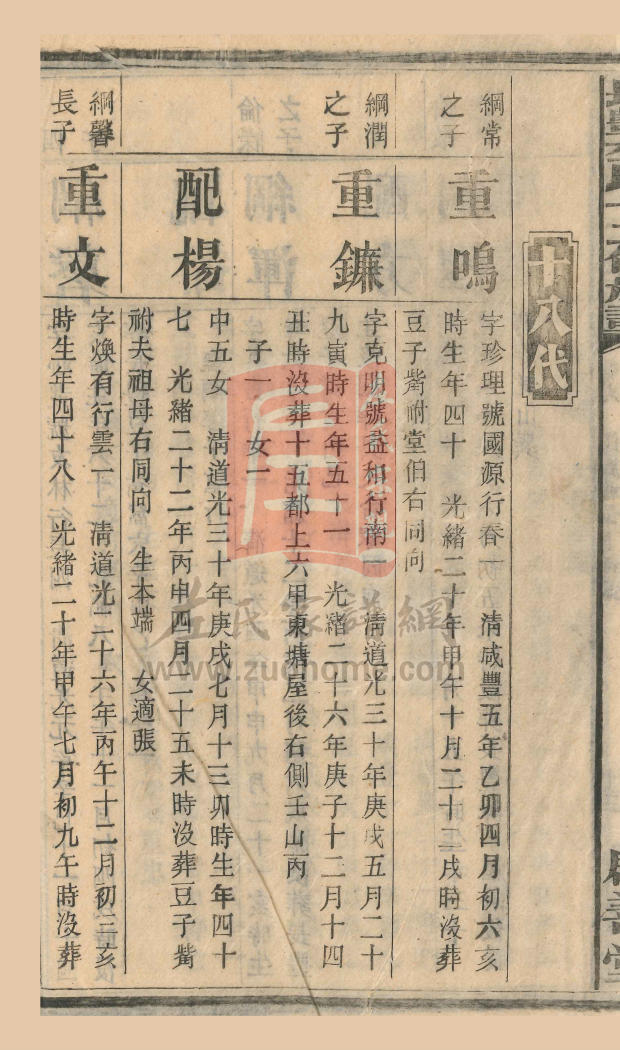 廿八代
綱常
之子
重鳴
字珍理號國源行春一 清咸豐五年乙卯四月初六亥
時生年四十 光緒二十年甲午十月二十三戌時沒葬
豆子觜祔堂伯右同向
綱潤
之子
重鐮
字克明號益和行南一 清道光三十年庚戌五月二十
九寅時生年五十一 光緒二十六年庚子十二月十四
丑時沒葬十五都上六甲東塘屋後右側壬山丙
子一 女一
配楊
中五女 清道光三十年庚戌七月十三卯時生年四十
七 光緒二十二年丙申四月二十五未時沒葬豆子觜
祔夫祖母右同向 生本端 女適張
綱馨
長子
重文
字煥有行雲一 清道光二十六年丙午十二月初三亥
時生年四十八 光緒二十年甲午七月初九午時沒葬
善堂
左氏家譜網
www.zuohome.com